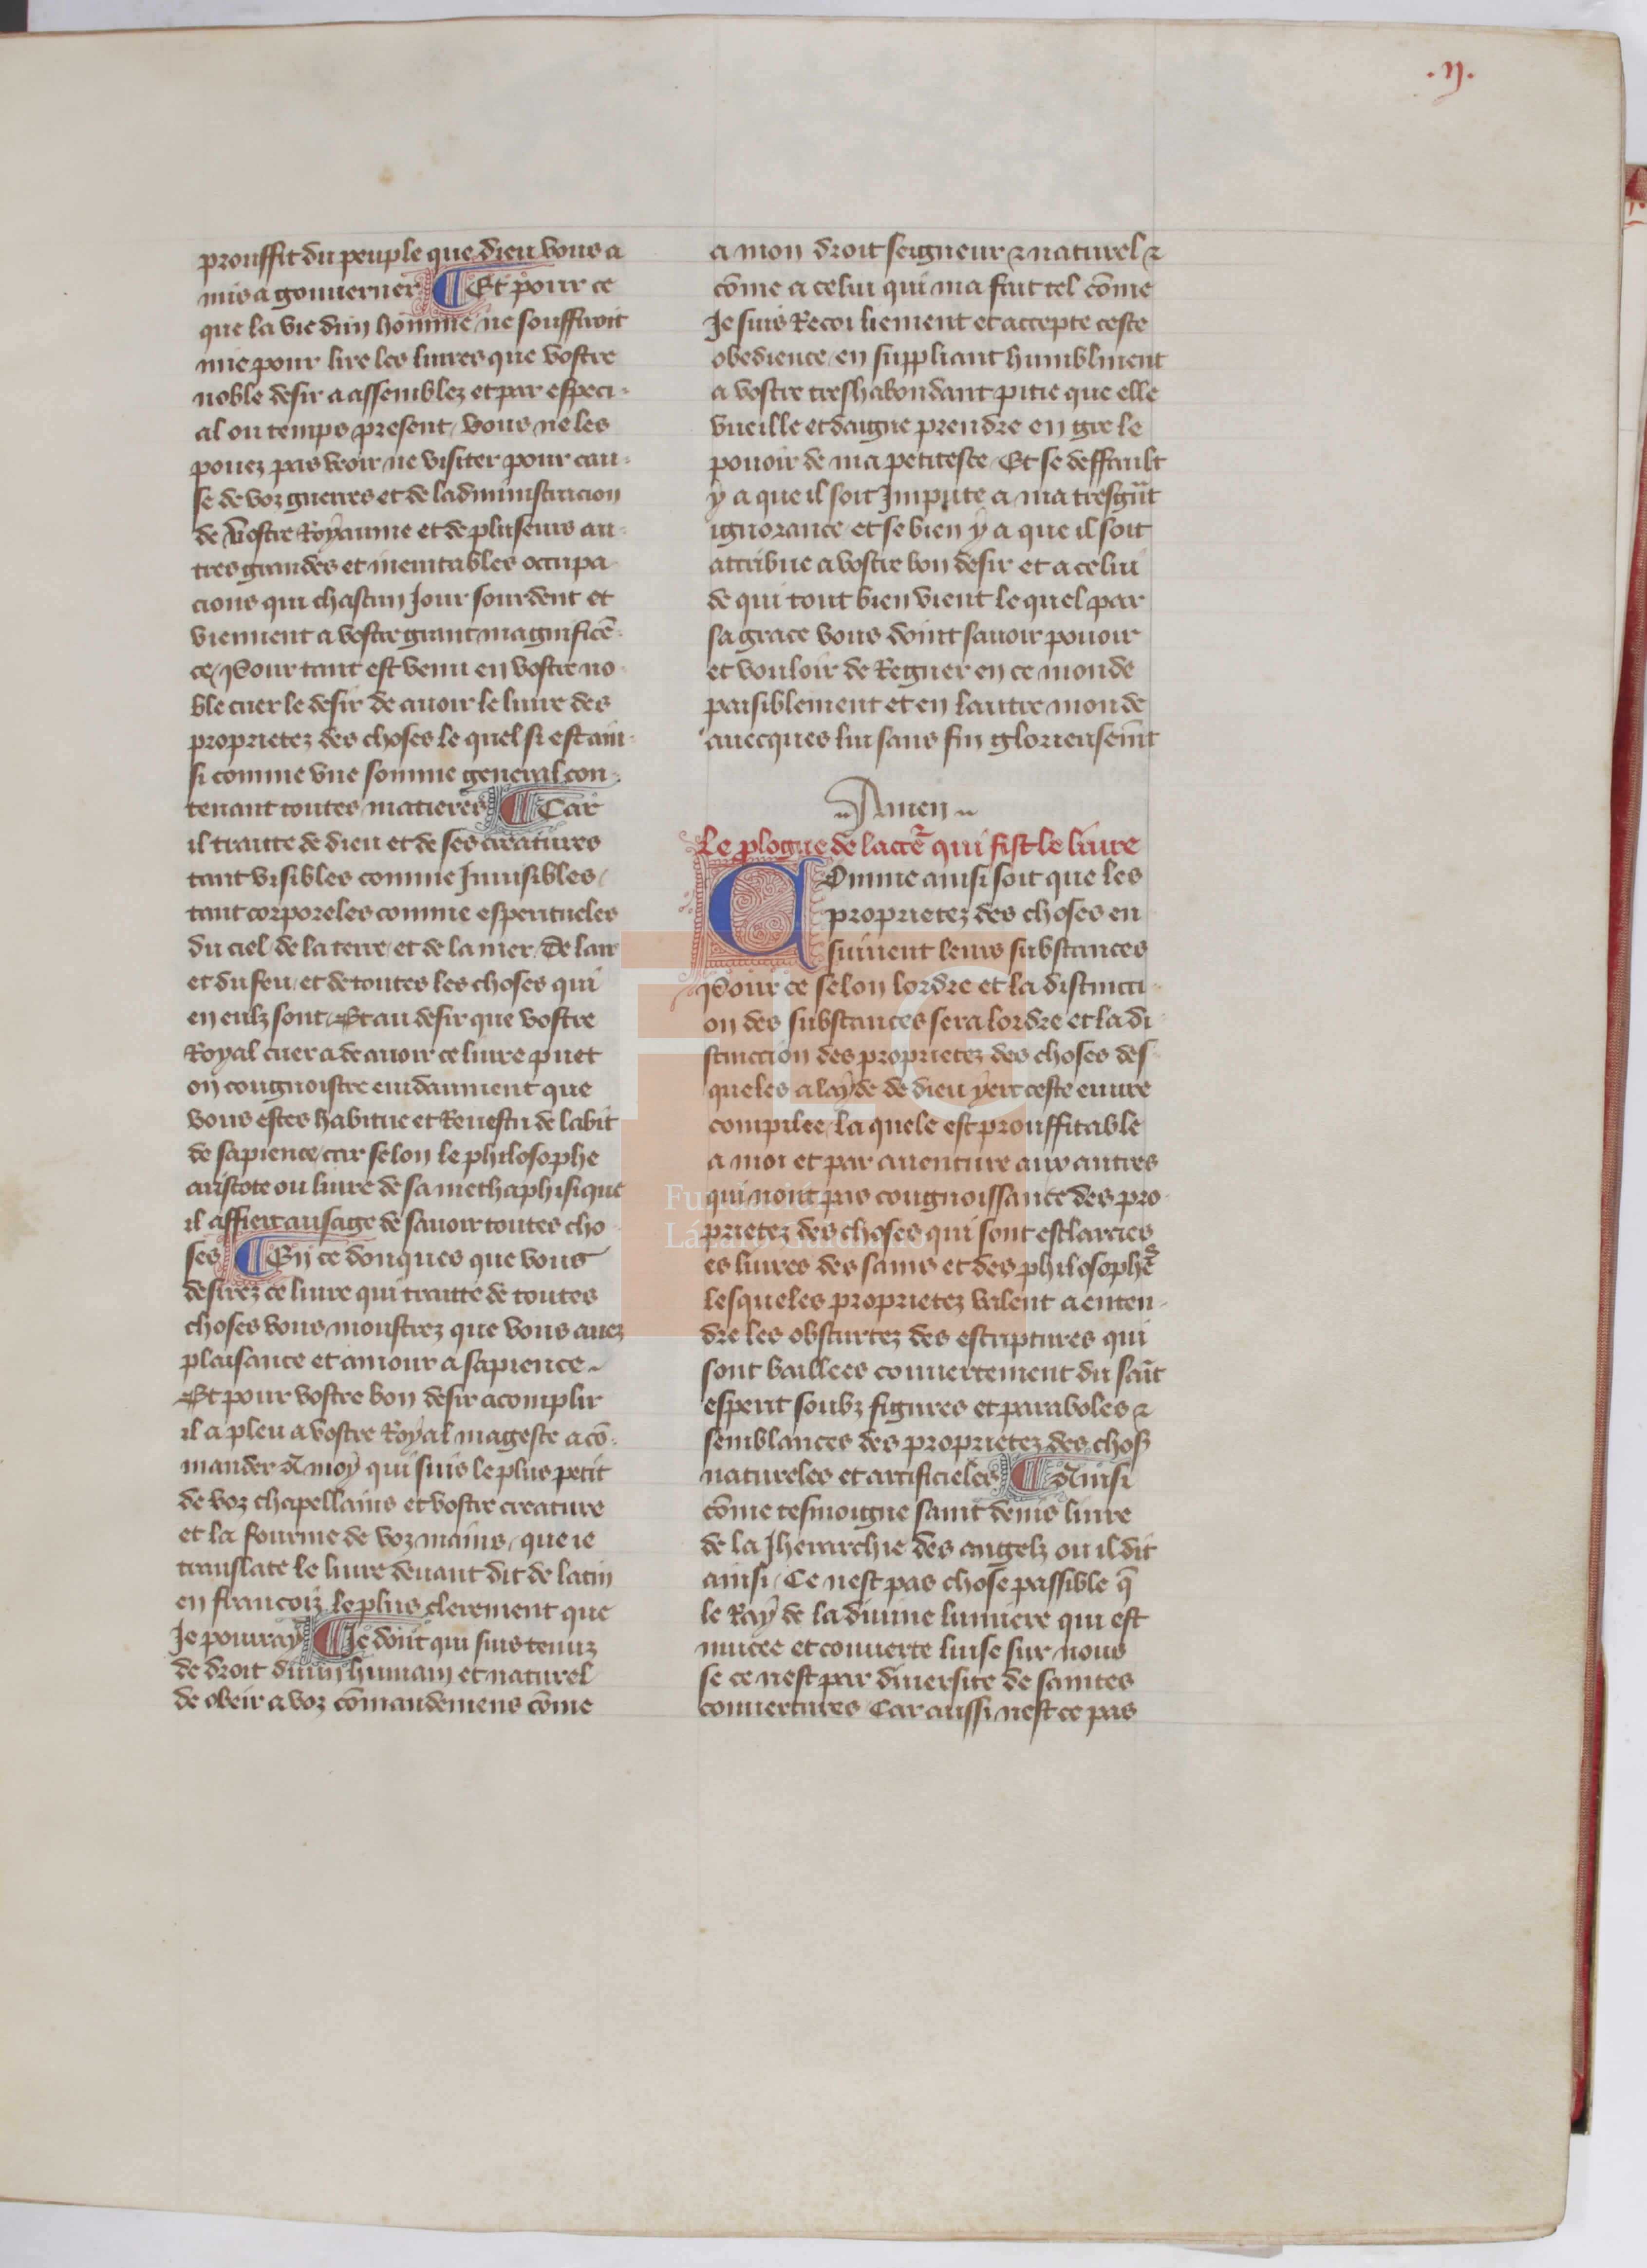 .ij.
prouffit du peuple que dieu vous a
mis a gouuerner Et pour ce
que la vie dun homme ne souffiroit
mie pour lire les liures que vostre
noble desir a assemblez et par especi-
al ou temps present, vous ne les
pouez pas veoir ne visiter pour cau-
se de voz guerres et de ladministracion
de vostre Royaume et de pluseurs au-
tres grandes et ineuitables occupa-
cions qui chascun Jour sourdent et
viennent a vostre grant magnificē-
ce / Pour tant est venu en vostre no-
ble cuer le desir de auoir le liure des
proprietez des choses le quel si est ain-
si comme vne somme general con-
tenant toutes matieres Car
il traitte de dieu et de ses creatures
tant visibles comme Inuisibles /
tant corporeles comme esperitueles
du ciel / de la terre / et de la mer / De lair
et du feu / et de toutes les choses qui
en eulz sont / Et au desir que vostre
Royal cuer a de auoir ce liure puet
on congnoistre euidamment que
vous estes habitue et Reuestu de labit
de sapience / car selon le philosophe
aristote ou liure de sa methaphisique
il affiert au sage de sauoir toutes cho-
ses En ce donques que vous
desirez ce liure qui traitte de toutes
choses vous monstrez que vous auez
plaisance et amour a sapience ~
Et pour vostre bon desir acomplir
il a pleu a vostre Royal mageste a cō-
mander A moy qui suis le plus petit
de voz chapellains et vostre creature
et la fourme de voz mains / que ie
translate le liure deuant dit de latin
en francoiz le plus clerement que
Je pourray Je dont qui suis tenuz
de droit diuin humain et naturel
de obeir a voz cōmandemens cōme
a mon droit seigneur ⁊ naturel ⁊
cōme a celui qui ma fait tel cōme
Je suis Recoi liement et accepte ceste
obedience / en suppliant humblment
a vostre treshabondant pitie que elle
vueille et daigne prendre en gre le
pouoir de ma petitesce / Et se deffault
y a que il soit Impute a ma tresgñt
ignorance / et se bien y a que il soit
attribue a vostre bon desir et a celui
de qui tout bien vient le quel par
sa grace vous doint sauoir pouoir
et vouloir de Regner en ce monde
paisiblement et en lautre monde
auecques lui sans fin glorieusemt̄
Amen
Le plogue de lacte᷑ qui fist le liure
Comme ainsi soit que les
proprietez des choses en
suiuent leurs substances
Pour ce selon lordre et la distincti-
on des substances sera lordre et la di-
stinction des proprietez des choses des-
queles a layde de dieu yert ceste euure
compilee / la quele est prouffitable
a moi et par auenture aux autres
qui nont pas congnoissance des pro-
prietez des choses qui sont esclarcies
es liures des sains et des philosophēs
lesqueles proprietez valent a enten-
dre les obscurtez des escriptures qui
sont baillees couuertement du sait̄
esperit soubz figures et paraboles ⁊
semblances des proprietez des chos̄
natureles et artificieles Ainsi
cōme tesmoigne saint denis liure
de la Jherarchie des angelz ou il dit
ainsi / Ce nest pas chose passible q̄
le Ray de la diuine lumiere qui est
mucee et couuerte luise sur nous
se ce nest par diuersite de saintes
couuertures / Car aussi nest ce pas
Fundación
Lázaro Galdiano